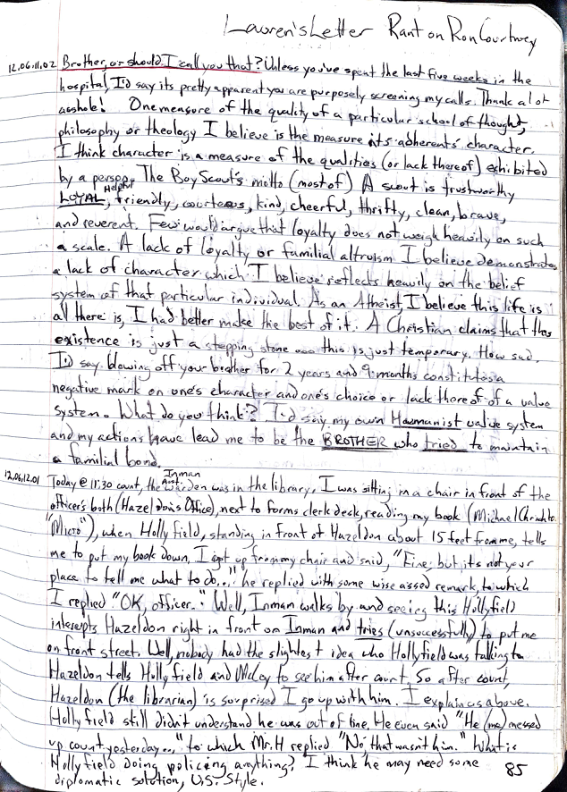 Lauren's Letter Rant on Ron Courtney
12.06.11.02 Brother, or should I call you that? Unless you've spent the last five weeks in the
hospital, I'd say its pretty apparent you are purposely screening my calls. Thank a lot
asshole! One measure of the quality of a particular school of thought,
philosophy or theology I believe is the measure its adherents' character.
I think character is a measure of the qualities (or lack thereof) exhibited
by a person. The Boy Scout's motto (most of) A scout is trustworthy
LOYAL, Helpful friendly, courteous, kind, cheerful, thrifty, clean, brave,
and reverent. Few would argue that loyalty does not weigh heavily on such
a scale. A lack of loyalty or familial altruism I believe demonstrates
a lack of character which I believe reflects heavily on the belief
system of that particular individual. As an Atheist, I believe this life is
all there is, I had better make the best of it. A Christian claims that this
existence is just a stepping stone this is just temporary. How sad.
I'd say blowing off your brother for 2 years and 9 months constitutes a
negative mark on one's character and one's choice or lack thereof of a value
system. What do you think? I'd say my own Humanist value system
and my actions have lead me to be the BROTHER who tried to maintain
a familial bond.
12.06.12.01 Today @ 11:30 count, the Inman was in the library. I was sitting in a chair in front of the
officer's both (Hazeldon's Office), next to forms clerk desk, reading my book (Michael
"Micro"), when Hollyfield, standing in front of Hazeldon about 15 feet from me, tells
me to put my book down. I got up from my chair and said, "Fine; but its not your
place to tell me what to do..." he replied with some wise assed remark, to which
I replied "OK, officer." Well, Inman walks by and seeing this Hollyfield
intercepts Hazeldon right in front on Inman and tries (unsuccessfully) to put me
on front street. Well, nobody had the slightest idea who Hollyfield was talking to
Hazeldon tells Hollyfield and McCoy to see him after count. So after count,
Hazeldon (the librarian) is surprised I go up with him. I explain as above.
Hollyfield still didn't understand he was out of line. He even said "He (me) messed
up count yesterday..," to which Mr. H replied "No, that wasn't him." What is
Hollyfield doing policing anything? I think he may need some
diplomatic solution, U.S. Style.
85